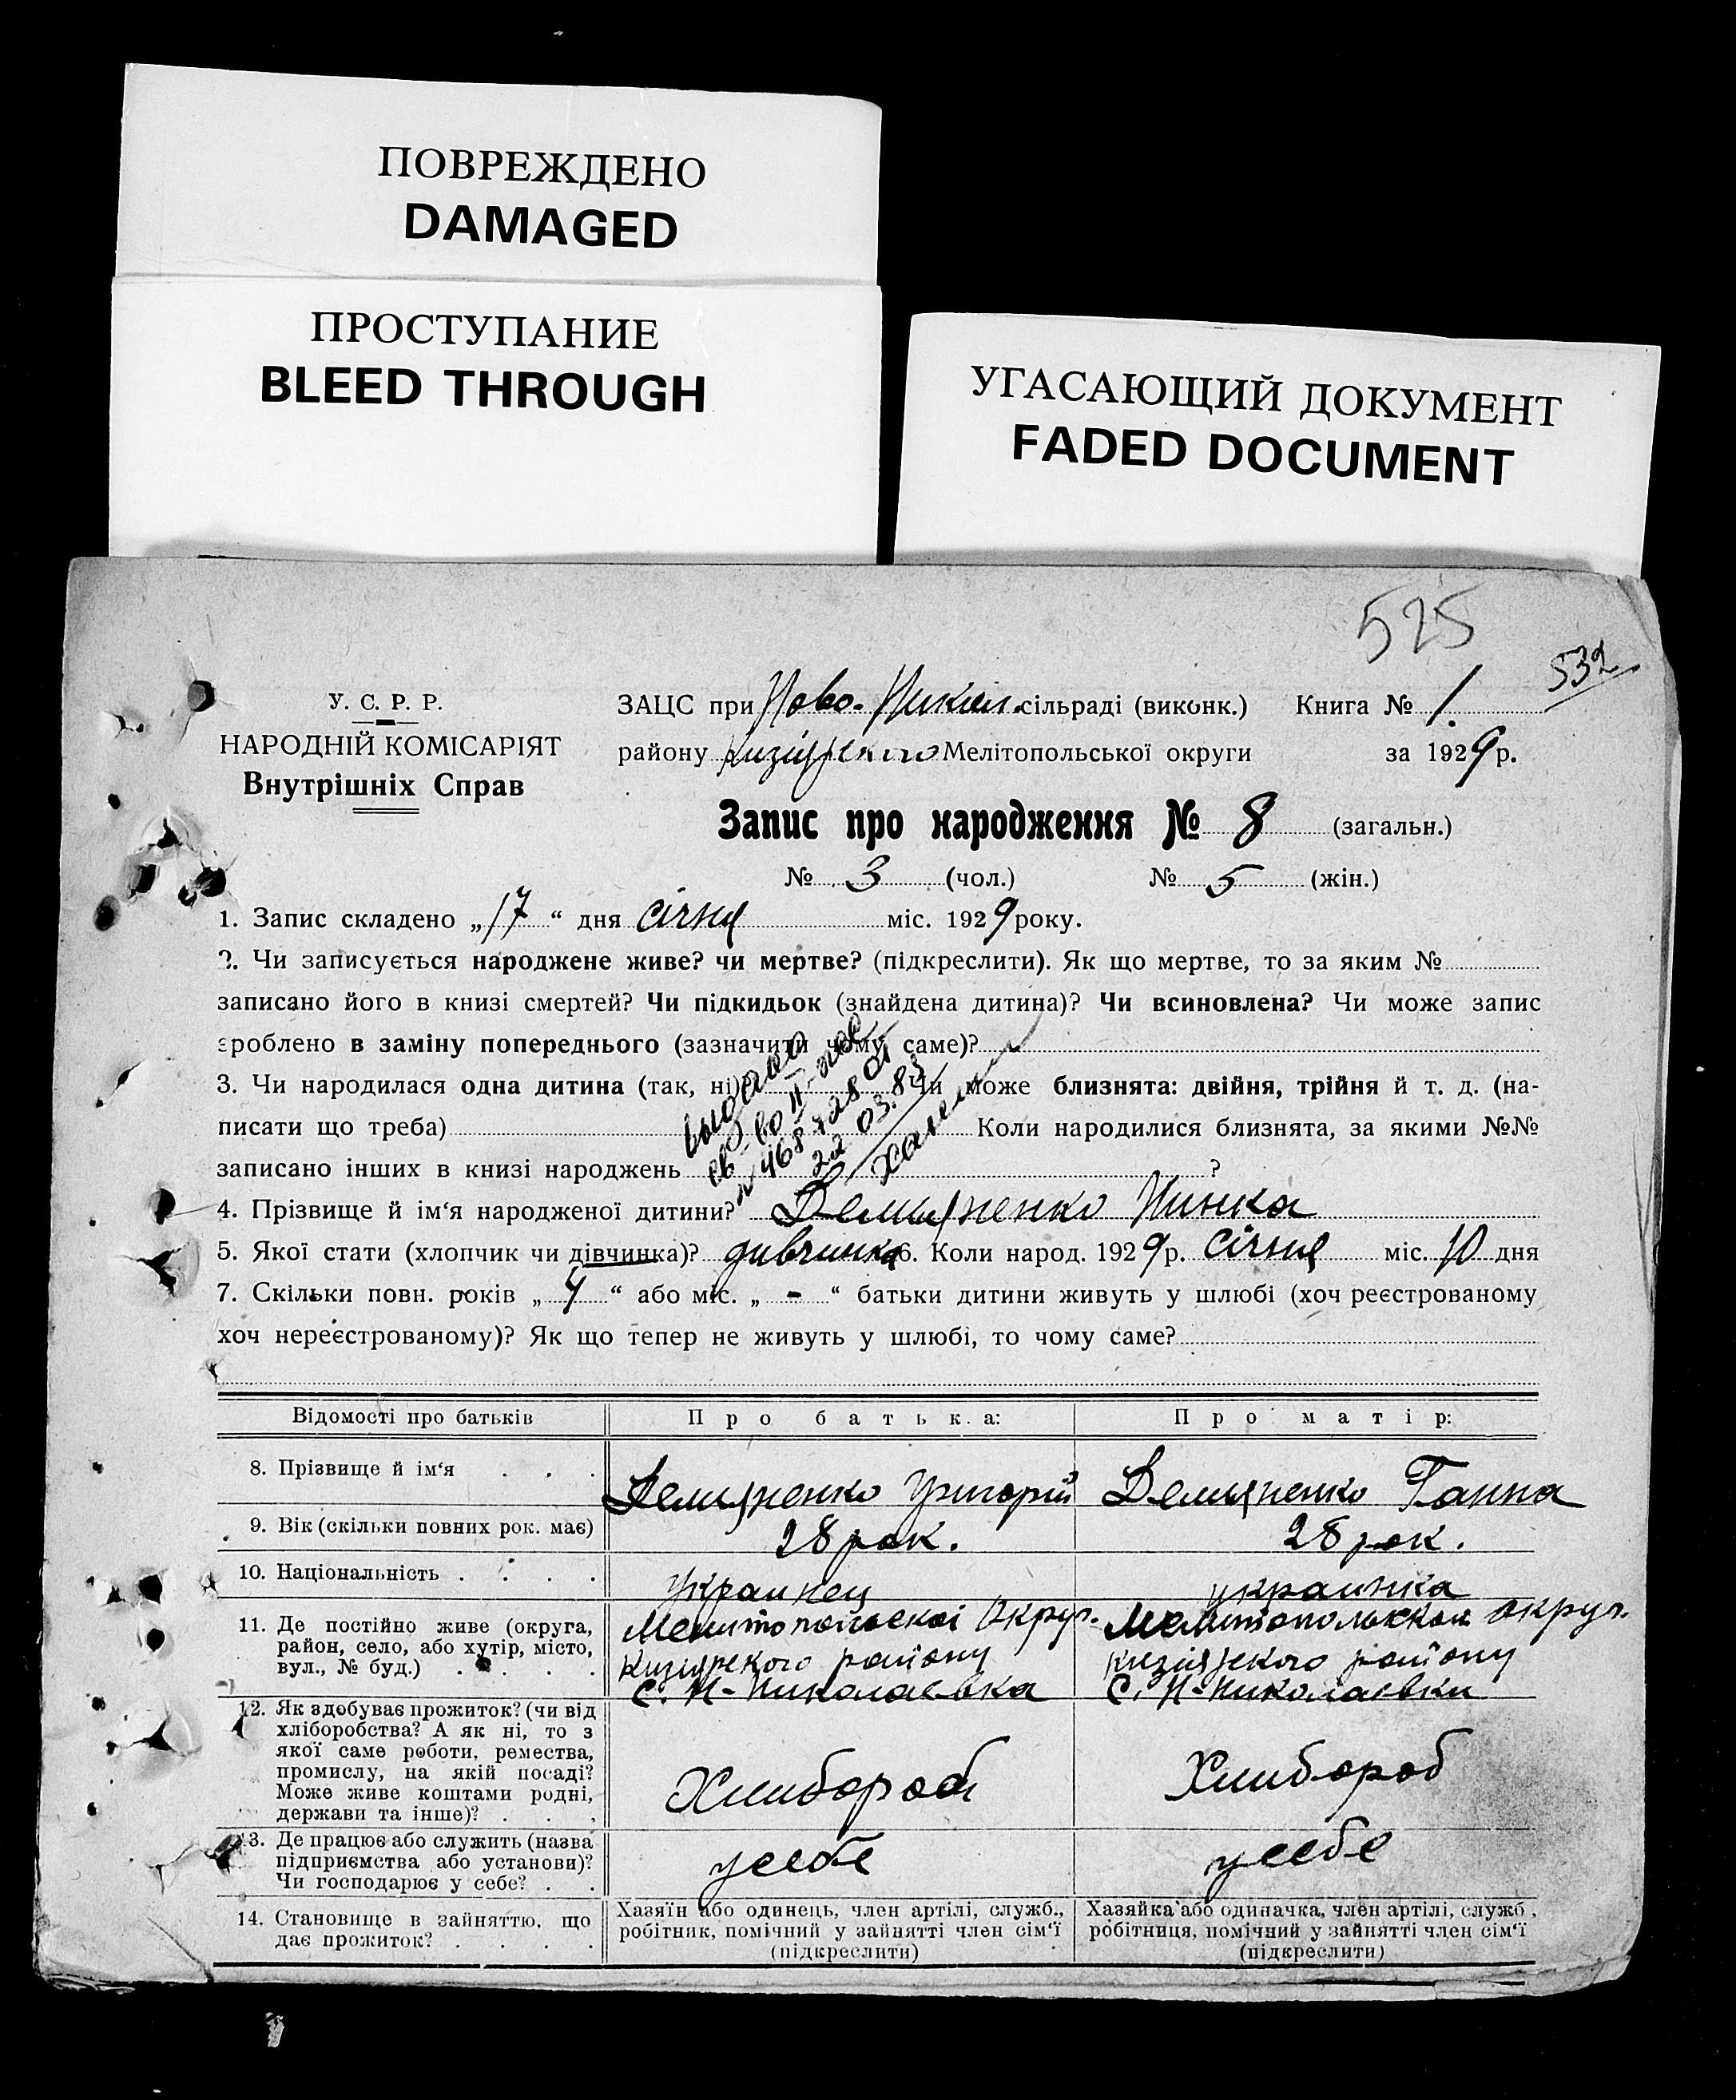 ПОВРЕЖДЕНО
DAMAGED
ПРОСТУПАНИЕ
BLEED THROUGH
УГАСАЮЩИЙ ДОКУМЕНТ
FADED DOCUMENT
525
532
У. С. Р. Р.
НАРОДНІЙ КОМІСАРІЯТ
Внутрішніх Справ
ЗАЦС при Ново-Никол. сільраді (виконк.) Книга № 1.
району Мелітопольської округи за 1929 р.
Запис про народження № 8 (загальн.)
№ 3 (чол.) № 5 (жін.)
1. Запис складено „17“ дня січня міс. 1929 року.
2. Чи записується народжене живе? чи мертве? (підкреслити). Як що мертве, то за яким №
записано його в книзі смертей? Чи підкидьок (знайдена дитина)? Чи всиновлена? Чи може запис
зроблено в заміну попереднього (зазначити чому саме)?
3. Чи народилася одна дитина (так, ні) Чи може близнята: двійня, трійня й т. д. (на-
писати що треба) Коли народилися близнята, за якими №№
записано інших в книзі народжень ?
выдано
св-во II-ЖС
22 03. 83
4. Прізвище й ім‘я народженої дитини? Демяненко Нинка
5. Якої стати (хлопчик чи дівчинка)? дивчинка 6. Коли народ. 1929 р. січня міс. 10 дня
7. Скільки повн. років „4“ або міс. „-“ батьки дитини живуть у шлюбі (хоч реєстрованому
хоч нереєстрованому)? Як що тепер не живуть у шлюбі, то чому саме?
Відомості про батьків Про батька: Про матір:
8. Прізвище й ім‘я Демяненко Григорій Демяненко Ганна
9. Вік (скільки повних рок. має) 28 рок. 28 рок.
10. Національність украинец украинка
11. Де постійно живе (округа,
район, село, або хутір, місто,
вул., № буд.)
Мелитопольскоі округ.
Кизіярского району
С. Н-Николаевка
Мелитопольскои округ.
Кизіярского району
С. Н-Николаевки
12. Як здобуває прожиток? (чи від
хліборобства? А як ні, то з
якої саме роботи, ремества,
промислу, на якій посаді?
Може живе коштами родні,
держави та інше)?
Хлибороб
Хлибороб
13. Де працює або служить (назва
підприємства або установи)?
Чи господарює у себе?
усебе
усебе
14. Становище в зайняттю, що
дає прожиток?
Хазяїн або одинець, член артілі, служб.,
робітник, помічний у зайнятті член сім‘ї
(підкреслити)
Хазяйка або одиначка, член артілі, служб.,
робітниця, помічний у зайнятті член сім‘ї
(підкреслити)